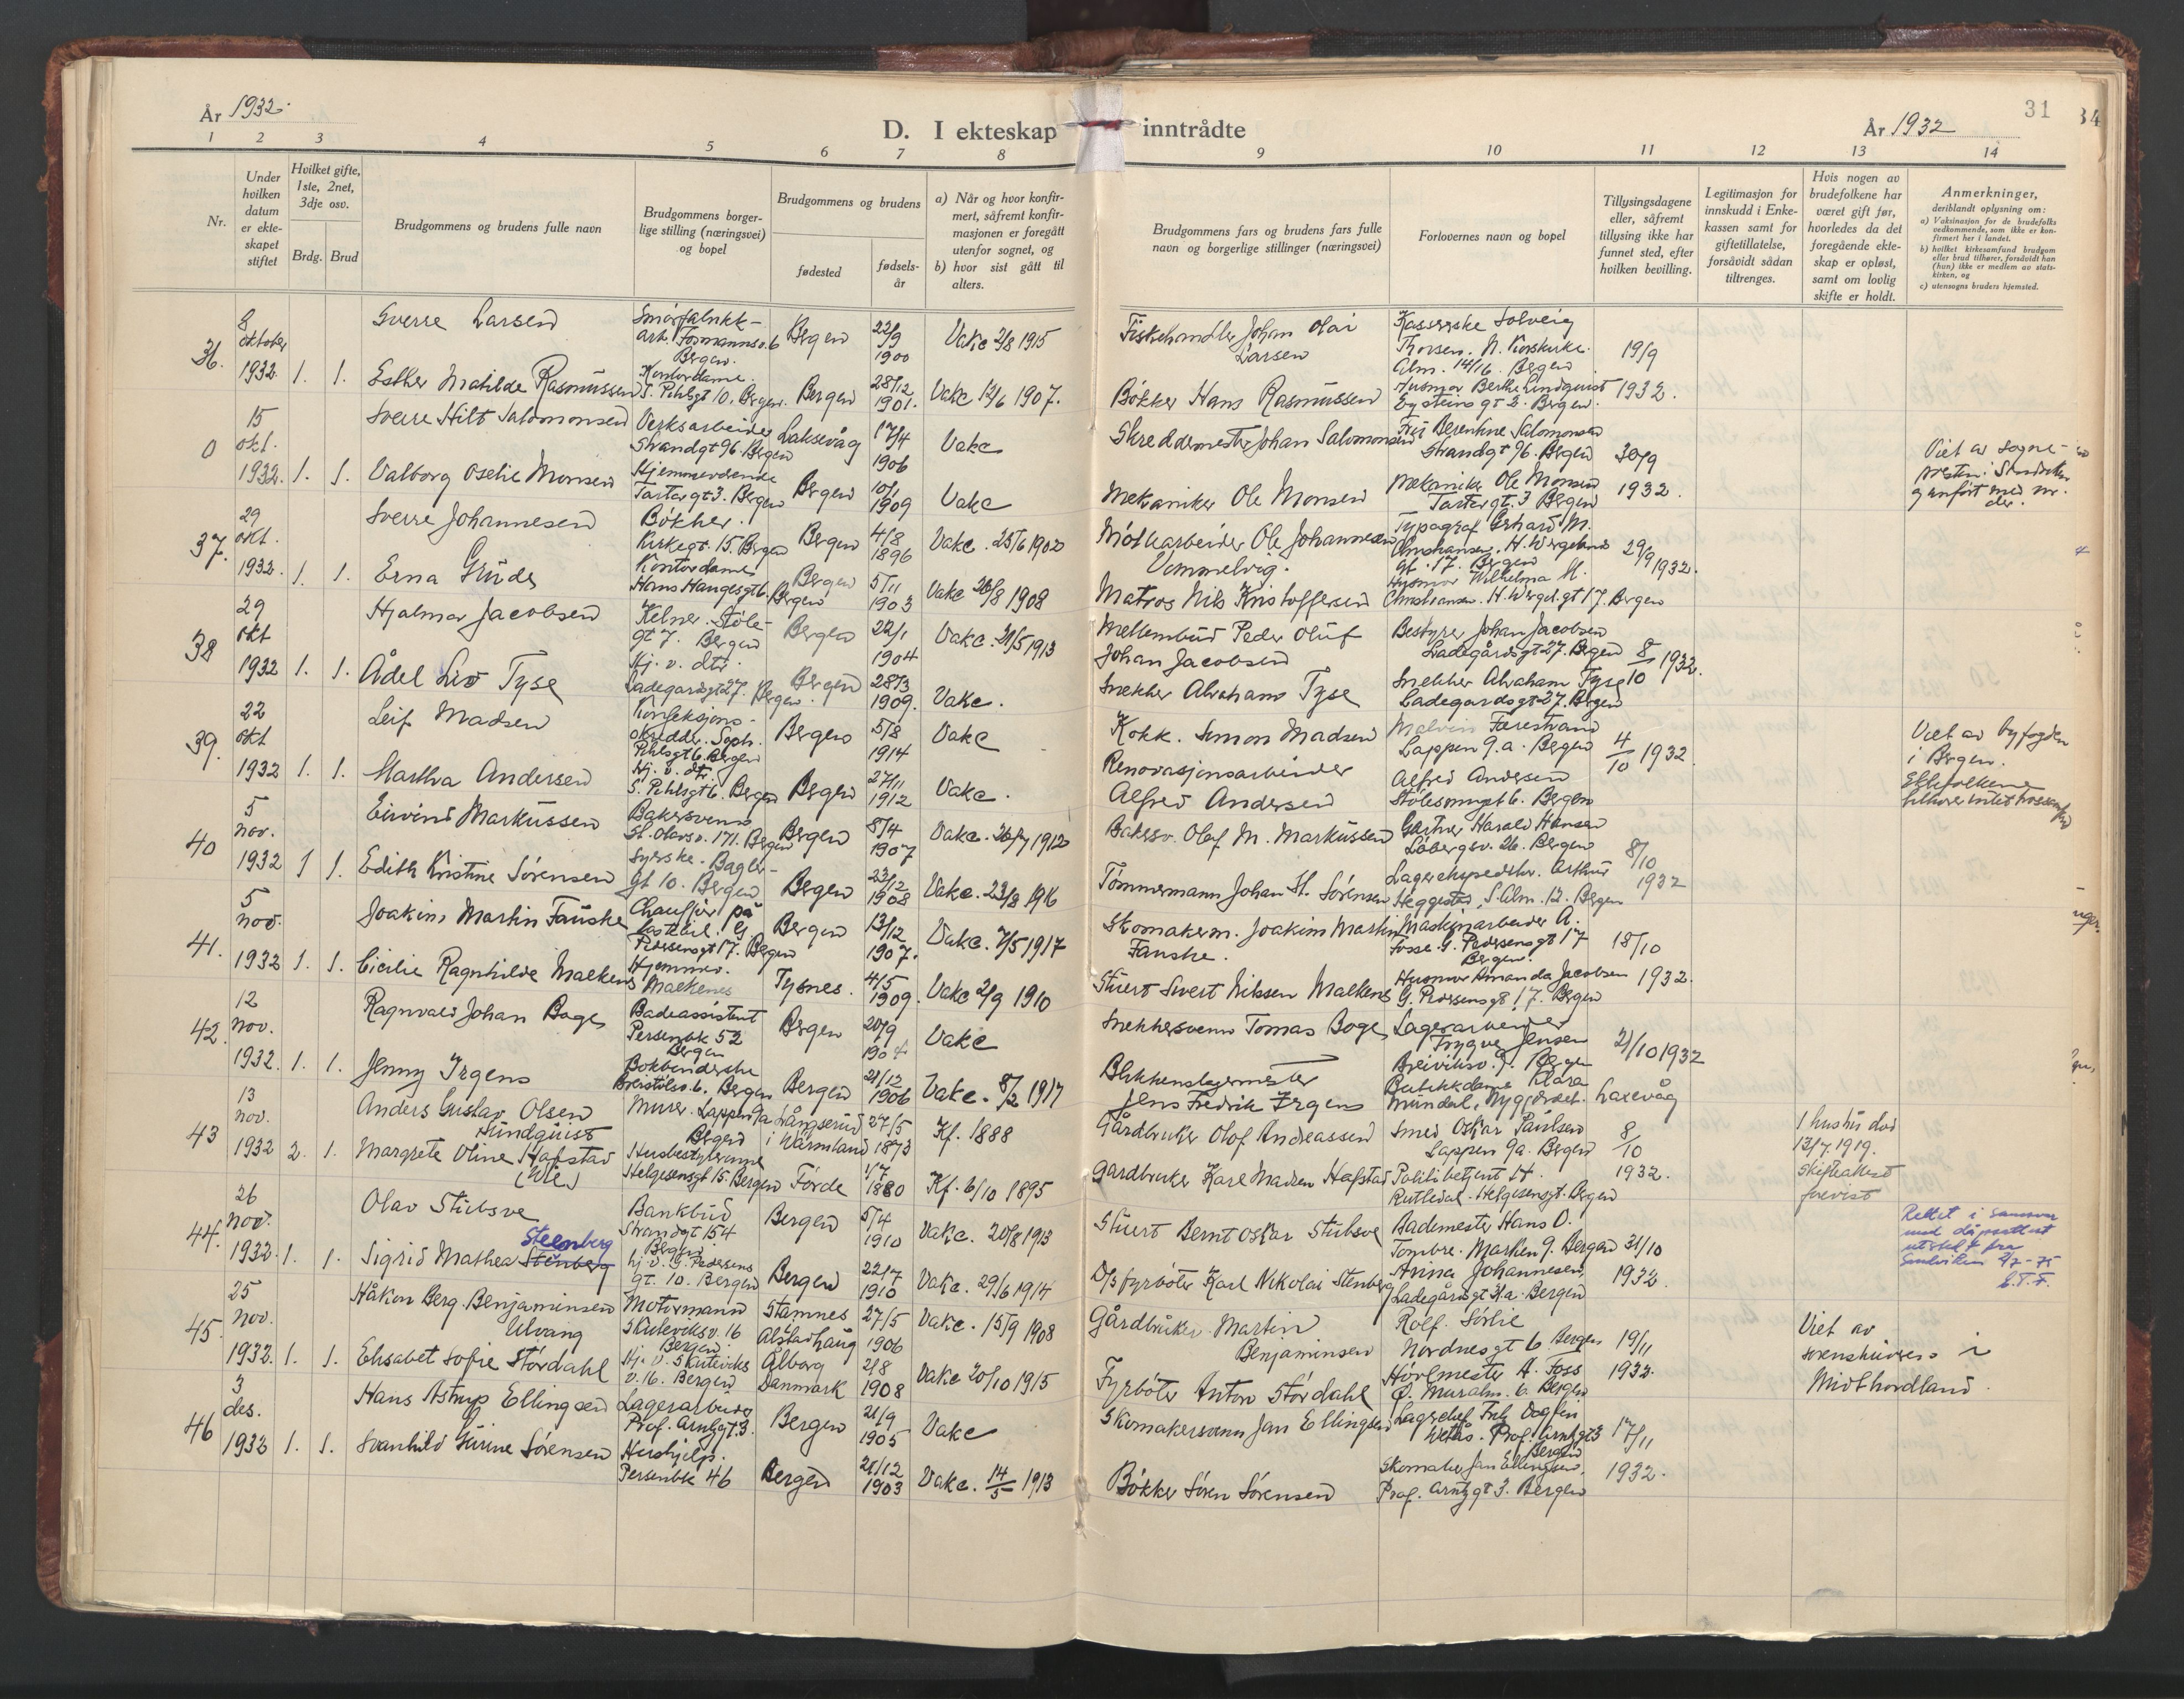 År 1932.
D. I ekteskap inntrådte
31
34
År 1932
1 2 3 4 5 6 7 8 9 10 11 12 13 14
Nr.
Under hvilken datum er ekteskapet stiftet
Hvilket gifte, 1ste, 2net, 3dje osv.
Brdg. Brud
Brudgommens og brudens fulle navn
Brudgommens borgerlige stilling (næringsvei) og bopel
Brudgommens og brudens
fødested
fødselsår
a) Når og hvor konfirmert, såfremt konfirmasjonen er foregått utenfor sognet, og
b) hvor sist gått til alters.
Brudgommens fars og brudens fars fulle navn og borgerlige stillinger (næringsvei)
Forlovernes navn og bopel
Tillysingsdagene eller, såfremt tillysing ikke har funnet sted, efter hvilken bevilling.
Legitimasjon for innskudd i Enkekassen samt for giftetillatelse, forsåvidt sådan tiltrenges.
Hvis nogen av brudefolkene har været gift før, hvorledes da det foregående ekteskap er opløst, samt om lovlig skifte er holdt.
Anmerkninger, deriblandt oplysning om:
a) Vaksinasjon for de brudefolks vedkommende, som ikke er konfirmert her i landet.
b) hvilket kirkesamfund brudgom eller brud tilhører, forsåvidt han (hun) ikke er medlem av statskirken, og
c) utensogns bruders hjemsted.
36. 8 oktober 1932. 1. 1.
Sverre Larsen
Smørfabrikk-arb. Formannsv. 6 Bergen.
Bergen 22/9 1900 Vakc 2/8 1915
Fiskehandler Johan Olai Larsen
Kassererske Solveig Thorsen. N. Korskirke Alm. 14/16. Bergen
19/9 1932.
Esther Matilde Rasmussen
Kontordame. S. Pihlsgt 10. Bergen.
Bergen 28/12 1901. Vakc 12/6 1907.
Bøkker Hans Rasmussen
Husmor Berthe Lindquist Eysteins gt 2. Bergen.
0 15 okt. 1932. 1. 1.
Sverre Hilt Salomonsen
Verksarbeider Strandgt 96. Bergen
Laksevåg 17/4 1906 Vakc
Skreddermester Johan Salomonsen
Salomonsen Strandgt 96. Bergen
30/9 1932.
Viet av sognepresten i
Valborg Oselie Monsen
Hjemmeværende Tartargt 3. Bergen
Bergen 10/1 1909 Vakc
Mekaniker Ole Monsen
Mekaniker Ole Monsen Tartargt. 3 Bergen
37. 29 okt. 1932. 1. 1.
Sverre Johannesen
Bøkker. Kirkegt. 15. Bergen
Bergen 4/8 1896 Vakc. 25/6 1902
Ole Johannesen
Typograf Gerhard M. Christiansen. H. Wergelands gt. 17. Bergen
29/9 1932.
Erna Grüde
Kontordame Hans Haugesgt 6. Bergen
Bergen 5/11 1903 Vakc 26/8 1908
Matros Nils Kristoffersen
Husmor Wilhelma M. Christiansen. H. Wergel.gt 17. Bergen
38 29 okt 1932 1. 1.
Hjalmar Jacobsen
Kelner. Støle-gt 7. Bergen
Bergen 22/1 1904 Vakc. 21/5 1913
Mellembud Peder Oluf Johan Jacobsen
Bestyrer Johan Jacobsen Ladegårdsgt 27. Bergen
8/10 1932.
Ådel Liv Tyse
Hj. v. dtr. Ladegårdsgt 27. Bergen.
Bergen 28/3 1909. Vakc.
Snekker Abraham Tyse
Snekker Abraham Tyse Ladegårdsgt 27. Bergen
39. 22 okt 1932 1. 1.
Leif Madsen
Konfeksjonsskredder. Soph. Pihlsgt 6. Bergen
Bergen 5/8 1914 Vakc
Kokk. Simon Madsen
Malvin Farestrand Lappen 9.a. Bergen
4/10 1932
Viet av byfogden i Bergen. Ektefolkene
Martha Andersen
Hj. v. dtr. S. Pihlsgt 6. Bergen
Bergen 27/11 1912 Vakc.
Renovasjonsarbeider Alfred Andersen
Alfred Andersen Bergen
40 5 nov. 1932 1 1.
Eivind Markussen
Bakersvenn St. Olavsv. 171. Bergen
Bergen 8/4 1907 Vakc. 26/7 1912
Bakersv. Olaf M. Markussen
Gartner Harald Hansen Løbergsv. 26. Bergen
8/10 1932
Edith Kristine Sørensen
Syerske. Bagler-gt 10. Bergen
Bergen 23/12 1908 Vakc. 23/8 1916
Tømmermann Johan H. Sørensen
Lagerekspeditør. Arthur Heggestad, S. Alm. 12. Bergen
41. 5 nov. 1932 1. 1.
Joakim Martin Fauske
Chauffør på lastebil. G. Pedersensgt 17. Bergen
Bergen 13/12 1907. Vakc. 7/5 1917
Skomakerm. Joakim Martin Fauske.
Maskinarbeider A. Fosse. G. Pedersensgt 17 Bergen.
18/10 1932.
Cicilie Ragnhilde Malkenes
Hjemmev. Malkenes
Tysnes. 4/5 1909. Vakc 2/9 1910
Stuert Sivert Nilssen Malkenes
Husmor Amanda Jacobsen G. Pedersensgt 17. Bergen
42. 12 nov. 1932. 1. 1.
Ragnvald Johan Boge
Badeassistent Persenbk 52 Bergen
Bergen 20/9 1904 Vakc
Snekkersvenn Tomas Boge
Lagerarbeider Trygve Jensen Breiviksv. 9. Bergen
21/10 1932
Jenny Irgens
Bokbinderske Breistølsv. 6. Bergen
Bergen 21/12 1906 Vakc. 8/2 1917
Blikkenslagermester Jens Fredrik Irgens
Butikkdame Klara Mundal, Nygårdet. Laxevåg
43 13 nov. 1932 2. 1.
Anders Gustav Olsen Sundquist
Murer. Lappen 9a Bergen
Långserud i Wärmland 27/5 1873 Kf. 1888
Gårdbruker Olof Andreassen
Smed Oskar Paulsen Lappen 9a. Bergen
8/10 1932.
1 hustru død 13/7 1919. Skifteattest forevist
Margrete Oline Hafstad (Ule)
Husbestyrerinne Helgesensgt 15. Bergen
Førde 1/7 1880 Kf. 6/10 1895
Gårdbruker Karl Madsen Hafstad
Politibetjent H. Rutledal. Helgesensgt. Bergen
44. 26 nov. 1932. 1. 1.
Olav Stubsve
Bankbud Strandgt 154 Bergen
Bergen 5/4 1910 Vakc. 20/8 1913
Stuert Bernt Oskar Stubsve
Bademester Hans O. Tombre. Marken 9. Bergen
31/10 1932.
Rettet i samsvar med dåpsattest utstedt fra Sandviken 4/7-75 E.T.F.
Steenberg
Sigrid Mathea Stenberg
hj. v. G. Pedersens gt. 10. Bergen
Bergen 22/7 1910 Vakc. 29/6 1914
D/s fyrbøter Karl Nikolai Stenberg
Anna Johannesen, Ladegårdsgt 31.a. Bergen
45. 25 nov. 1932. 1. 1.
Håkon Berg Benjaminsen Ulvang
Motormann Skuteviksv. 16 Bergen.
Stamnes Alstadhaug 27/5 1906 Vakc. 15/9 1908
Gårdbruker Martin Benjaminsen
Rolf. Sørlie Nordnesgt 6 Bergen
19/11 1932.
Viet av sorenskriveren i Midthordland.
Elisabet Sofie Størdahl
Hj. v. Skuteviksv. 16. Bergen
Ålborg Danmark 2/8 1908 Vakc 20/10 1915
Fyrbøter Anton Størdahl
Høvlmester A. Foss Ø. Muralm. 6. Bergen
46 3 des. 1932 1. 1.
Hans Astrup Ellingsen
Lagerarbeider Prof. Arntzgt. 3.
Bergen 21/9 1905 Vakc
Skomakersvenn Jan Ellingsen
Lagerchef Dagfin Prof. Arntzgt 3 Bergen
17/11 1932.
Svanhild Gurine Sørensen
Hushjelp. Persenbk 46
Bergen 21/12 1903 Vakc. 14/5 1913
Bøkker Søren Sørensen
Skomaker Jan Ellingsen, Prof. Arntzgt 3. Bergen